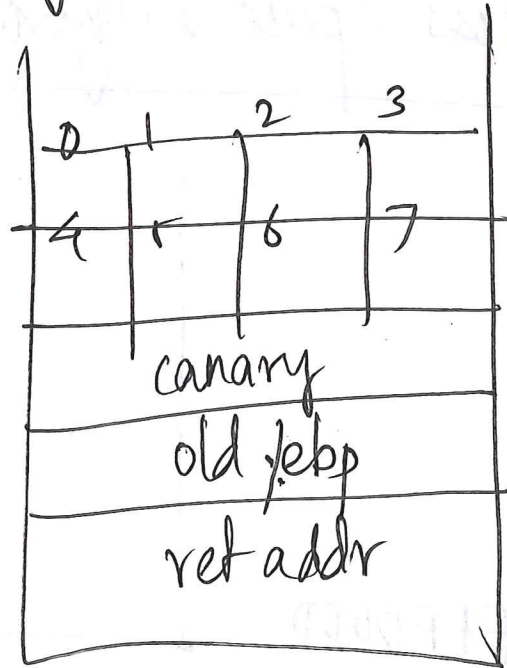 0 1 2 3
4 5 6 7
canary
old %ebp
ret addr